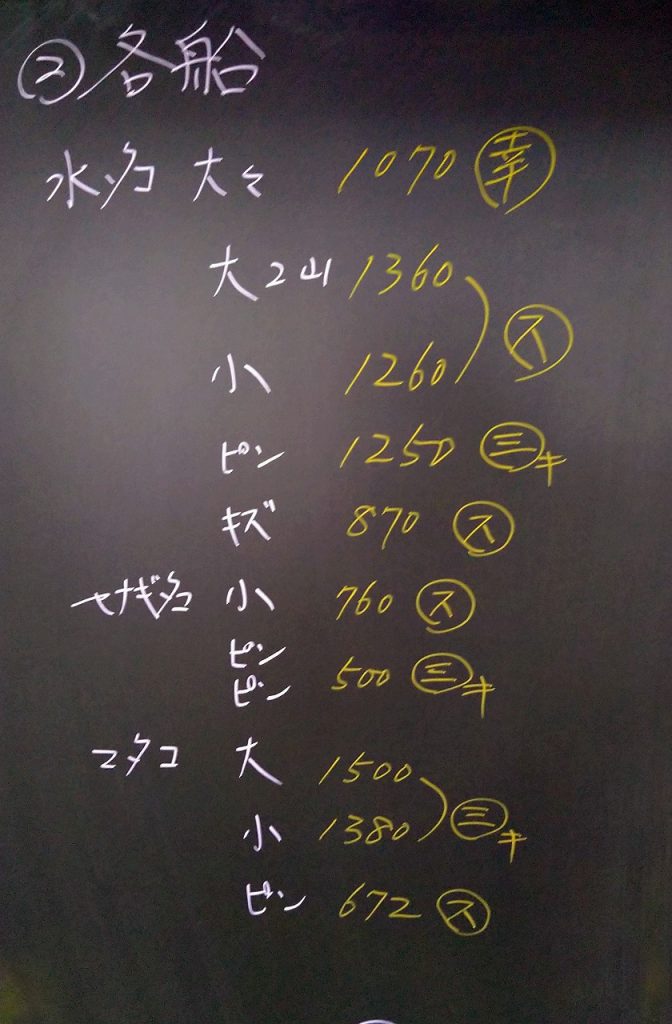 ②各船
水ダコ 大々 1070 ㊛幸
大2山 1360
小 1260 ㋜
ピン 1250 ㊂キ
キズ 870 ㋜
ヤナギダコ 小 760 ㋜
ピン
ピン 500 ㊂キ
マダコ 大 1500
小 1380 ㊂キ
ピン 672 ㋜